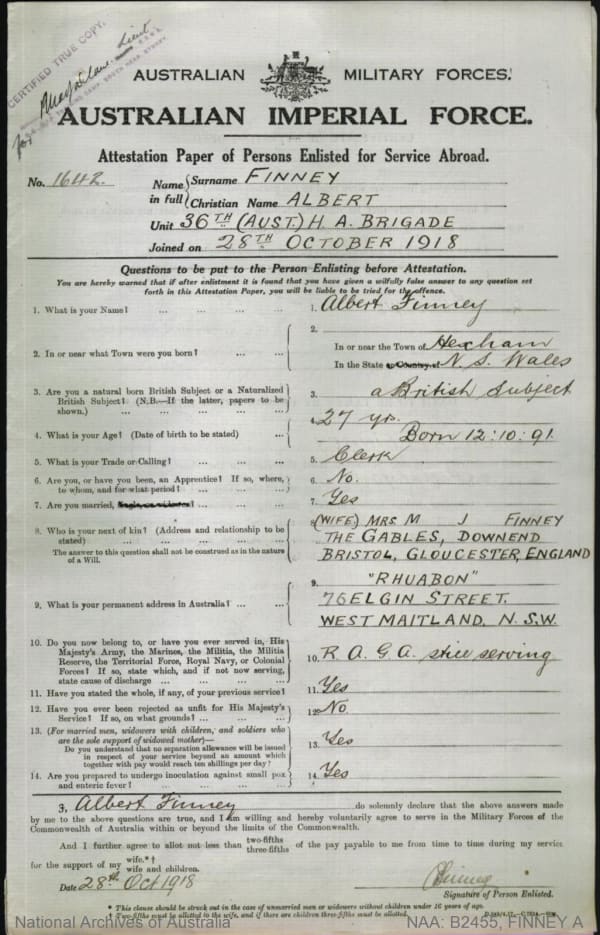 CERTIFIED TRUE COPY.
Lieut
for
AUSTRALIAN MILITARY FORCES.
AUSTRALIAN IMPERIAL FORCE.
Attestation Paper of Persons Enlisted for Service Abroad.
No. 1642. Name in full { Surname FINNEY
Christian Name ALBERT
Unit 36TH (AUST.) H. A. BRIGADE
Joined on 28TH OCTOBER 1918
Questions to be put to the Person Enlisting before Attestation.
You are hereby warned that if after enlistment it is found that you have given a wilfully false answer to any question set
forth in this Attestation Paper, you will be liable to be tried for the offence.
1. What is your Name? ... ... ... ... 1. Albert Finney
2. In or near what Town were you born? ... ... 2.
In or near the Town of Hexham
In the State or Country of N. S. Wales
3. Are you a natural born British Subject or a Naturalized
British Subject? (N.B.—If the latter, papers to be
shown.) ... ... ... ... 3. a British Subject
4. What is your Age? (Date of birth to be stated) ... 4. 27 yrs.
Born 12.10.91
5. What is your Trade or Calling? ... ... ... 5. Clerk
6. Are you, or have you been, an Apprentice? If so, where,
to whom, and for what period? ... ... ... 6. No.
7. Are you married, ... ... 7. Yes
8. Who is your next of kin? (Address and relationship to be
stated) ... ... ... ...
The answer to this question shall not be construed as in the nature
of a Will.
8. (WIFE) MRS M J FINNEY
THE GABLES, DOWNEND
BRISTOL, GLOUCESTER, ENGLAND
9. What is your permanent address in Australia? ... ... 9. "RHUABON"
76 ELGIN STREET.
WEST MAITLAND. N.S.W.
10. Do you now belong to, or have you ever served in, His
Majesty's Army, the Marines, the Militia, the Militia
Reserve, the Territorial Force, Royal Navy, or Colonial
Forces? If so, state which, and if not now serving,
state cause of discharge ... ... ... 10. R. A. G. A. still serving
11. Have you stated the whole, if any, of your previous service? 11. Yes
12. Have you ever been rejected as unfit for His Majesty's
Service? If so, on what grounds? ... ... 12. No
13. (For married men, widowers with children, and soldiers who
are the sole support of widowed mother)—
Do you understand that no separation allowance will be issued
in respect of your service beyond an amount which
together with pay would reach ten shillings per day? 13. Yes
14. Are you prepared to undergo inoculation against small pox
and enteric fever? ... ... ... ... 14. Yes
I, Albert Finney do solemnly declare that the above answers made
by me to the above questions are true, and I am willing and hereby voluntarily agree to serve in the Military Forces of the
Commonwealth of Australia within or beyond the limits of the Commonwealth.
And I further agree to allot not less than two-fifths three-fifths of the pay payable to me from time to time during my service
for the support of my wife.*† wife and children.
Date 28th Oct 1918 AFinney
Signature of Person Enlisted.
* This clause should be struck out in the case of unmarried men or widowers without children under 16 years of age.
† Two-fifths must be allotted to the wife, and if there are children three-fifths must be allotted.
National Archives of Australia NAA: B2455, FINNEY A